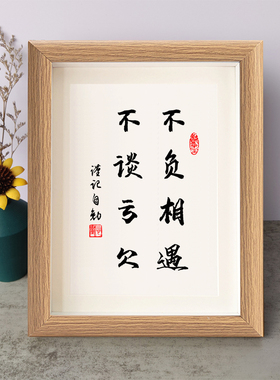 不负相遇
不谈亏欠
谨记自勉